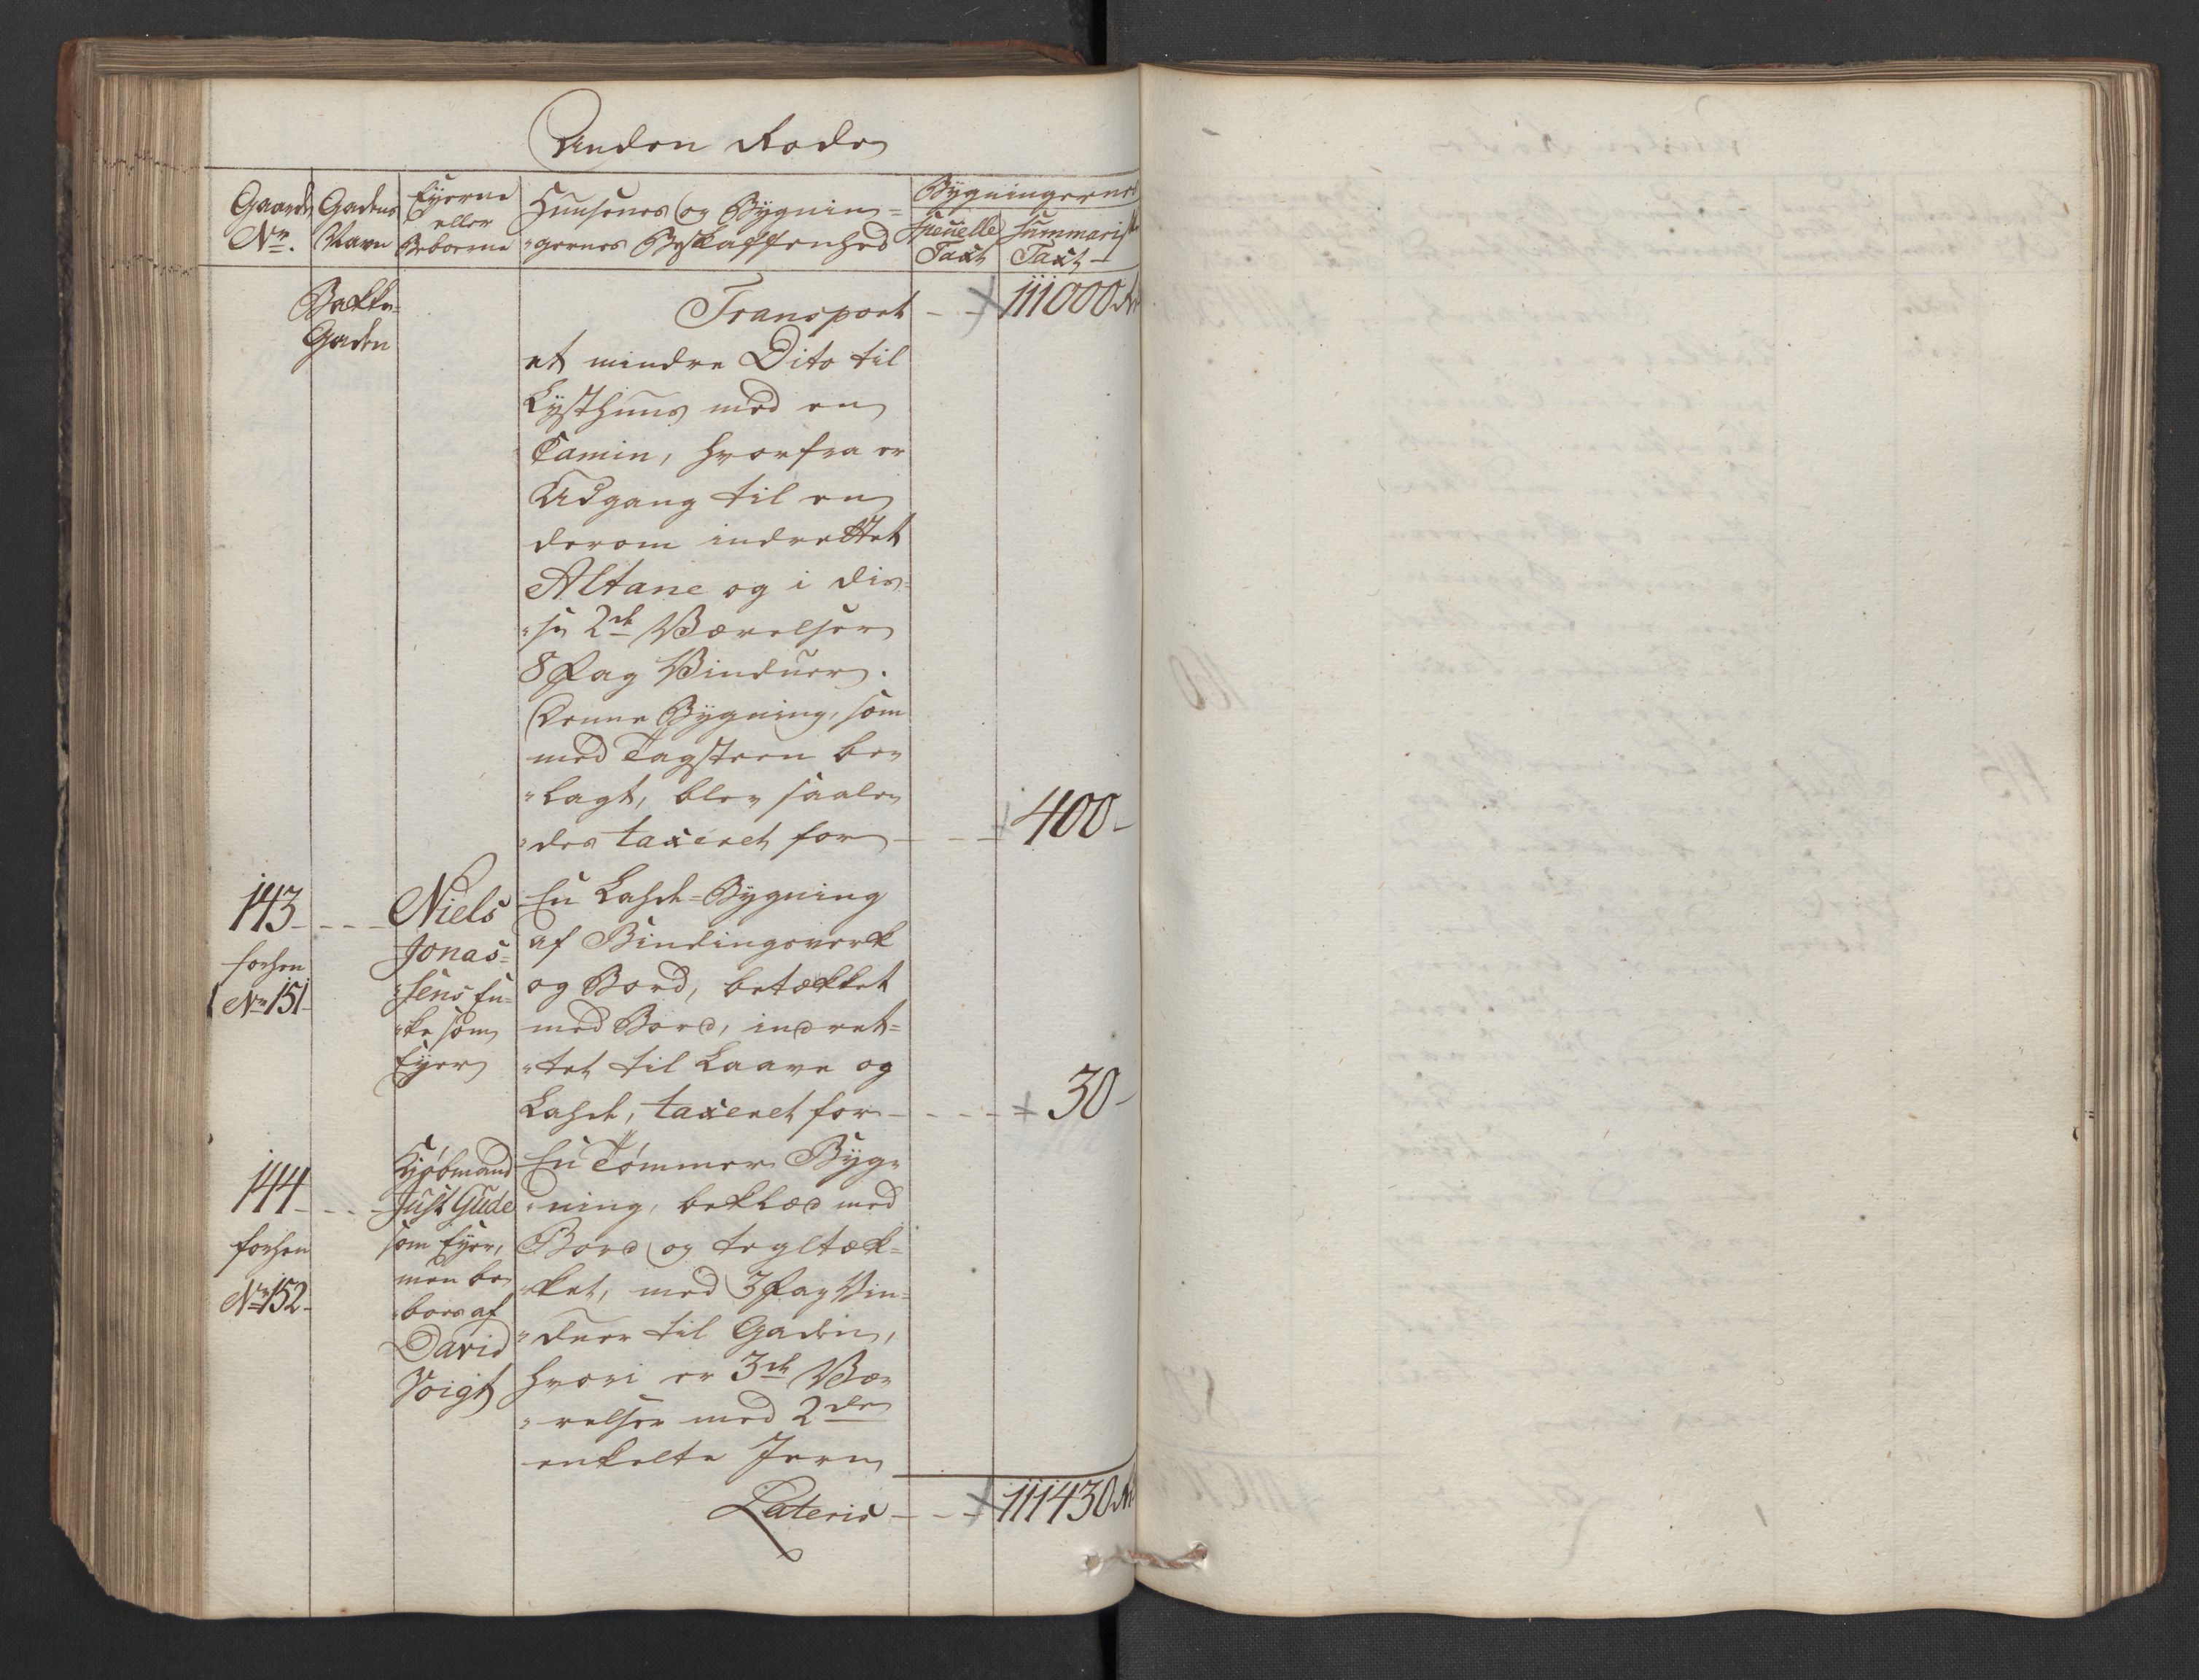 Anden Rode
Gaards Gadens Eyerne Huusenes og Bygnin= Bygningernes
eller
No. Navn Beboerne "gernes Beskaffenhed Speciелle Summariske
Taxt Taxt
Bakke= Transport - - 111000 Rd
Gaden
et mindre Dito til
Lysthuus med en
Camin, hvorfra er
Adgang til en
derom indrettet
Altane og i dis=
"se 2de Værelser
8 Fag Vinduer.
Denne Bygning, som
med Tagsteen be=
"lagt, blev saale=
"des taxeret for - - - 400-
143 - - - Niels En Ladst-Bygning
forhen Jonas= af Bindingsverk
No 151 "sens En= og Bord, betækket
"ke som med Bord, indret=
Eyer "tet til Laave og
taxeret for - - - 30-
144 - - - Kjøbmand En Tømmer Byg=
Just Gude "ning, beklæd med
forhen som Eyer, Bord og tegltæk=
No 152 men be= "ket, med 3 Fag Vin=
"boes af "duer til Gaden,
David hvori er 3de Væ=
Voigt "relser med 2de
enkelte Jern
Lateris - - 111430 Rd